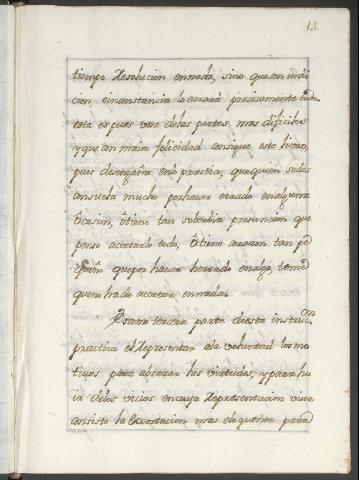 12.
tiempo Resolucion en nada, sino que con indi
cion, circonstancia lo errará precisamente todo.
esta es pues una de las partes mas dificiles
y que con maior felicidad consigue este libro,
pues desengaña en la practica, que quien se des
consuela mucho por haver errado en alguna
Ocasion, ó tiene tan soberbia presuncion que
penso acertarlo todo, ó tiene corazon tan pe
queño que por haver herrado en algo, teme
que no ha de acertar en nada.
Es como tercera parte de esta instruc.on
practica el Representar a la voluntad los mo
tivos para abrazar las virtudes, y para hu
ir de los vicios en cuya Representacion viva
consiste la Exortacion mas eloquente para